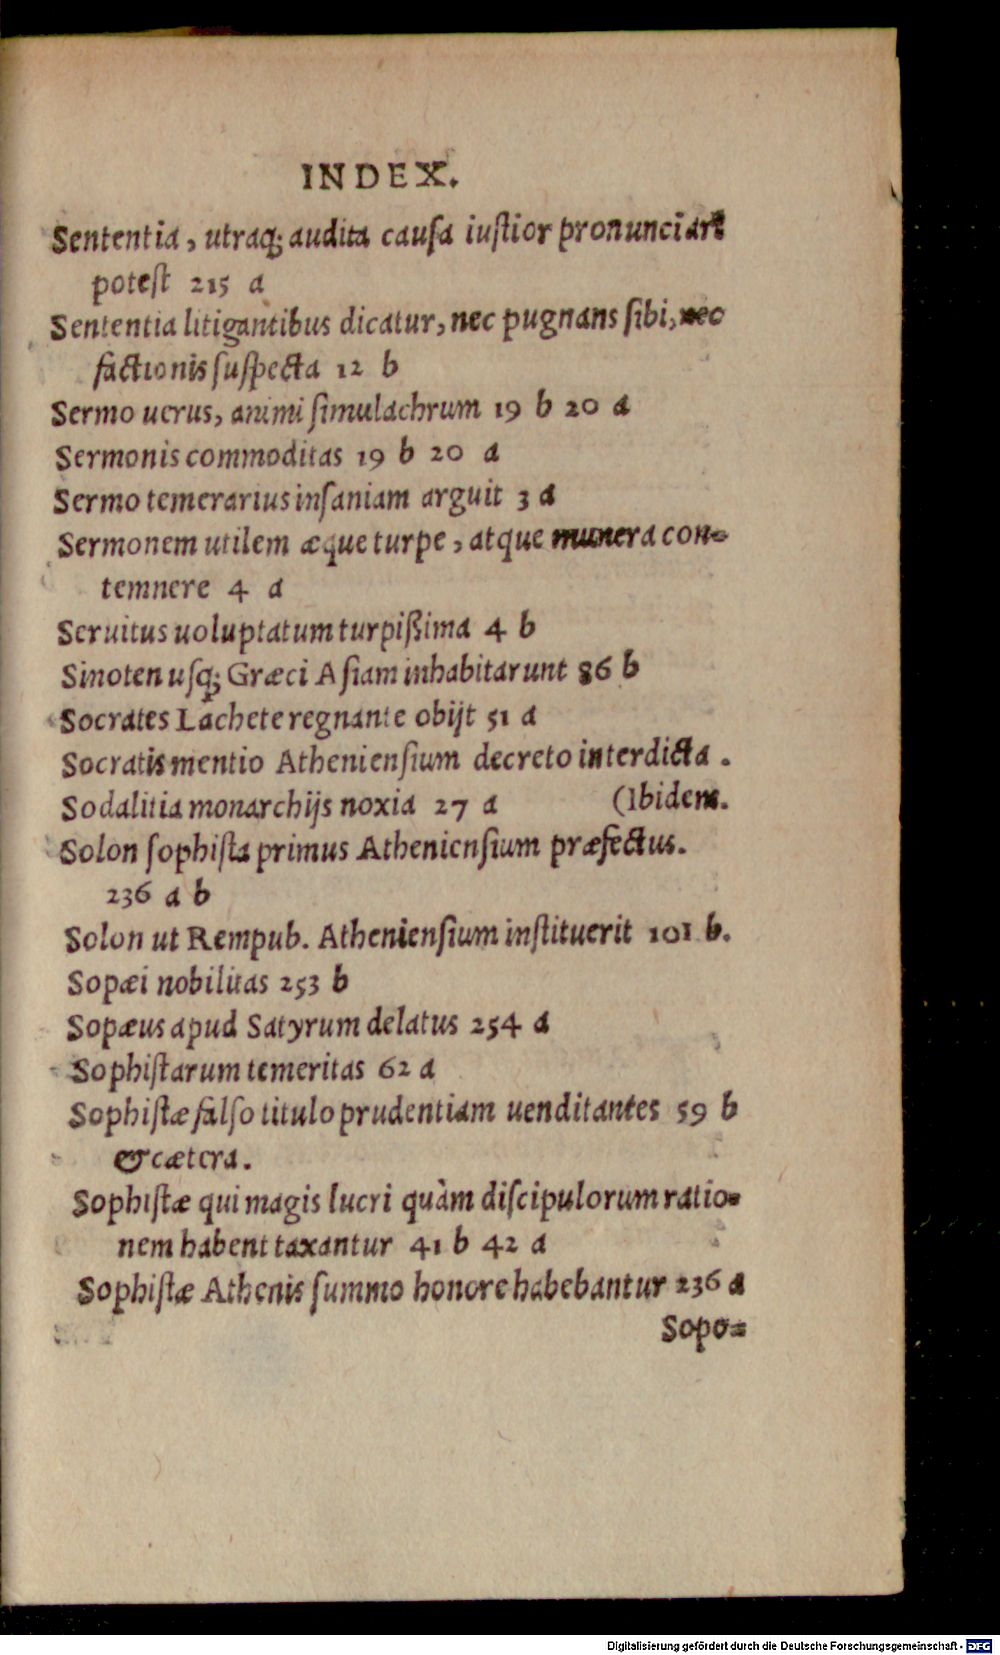 INDEX.
Sententia, utraq; audita causa iustior pronunciari
potest 215 a
Sententia litigantibus dicatur, nec pugnans sibi, nec
factionis suspecta 12 b
Sermo uerus, animi simulachrum 19 b 20 a
Sermonis commoditas 19 b 20 a
Sermo temerarius insaniam arguit 3 a
Sermonem utilem æque turpe, atque munera con-
temnere 4 a
Seruitus uoluptatum turpißima 4 b
Sinoten usq; Græci Asiam inhabitarunt 86 b
Socrates Lachete regnante obijt 51 a
Socratis mentio Atheniensium decreto interdicta.
Sodalitia monarchijs noxia 27 a (Ibidem.
Solon sophista primus Atheniensium præfectus.
236 a b
Solon ut Rempub. Atheniensium instituerit 101 b.
Sopæi nobilitas 253 b
Sopæus apud Satyrum delatus 254 a
Sophistarum temeritas 62 a
Sophistæ falso titulo prudentiam uenditantes 59 b
& cætera.
Sophistæ qui magis lucri quàm discipulorum ratio-
nem habent taxantur 41 b 42 a
Sophistæ Athenis summo honore habebantur 236 a
Sopo-
Digitalisierung gefördert durch die Deutsche Forschungsgemeinschaft - DFG